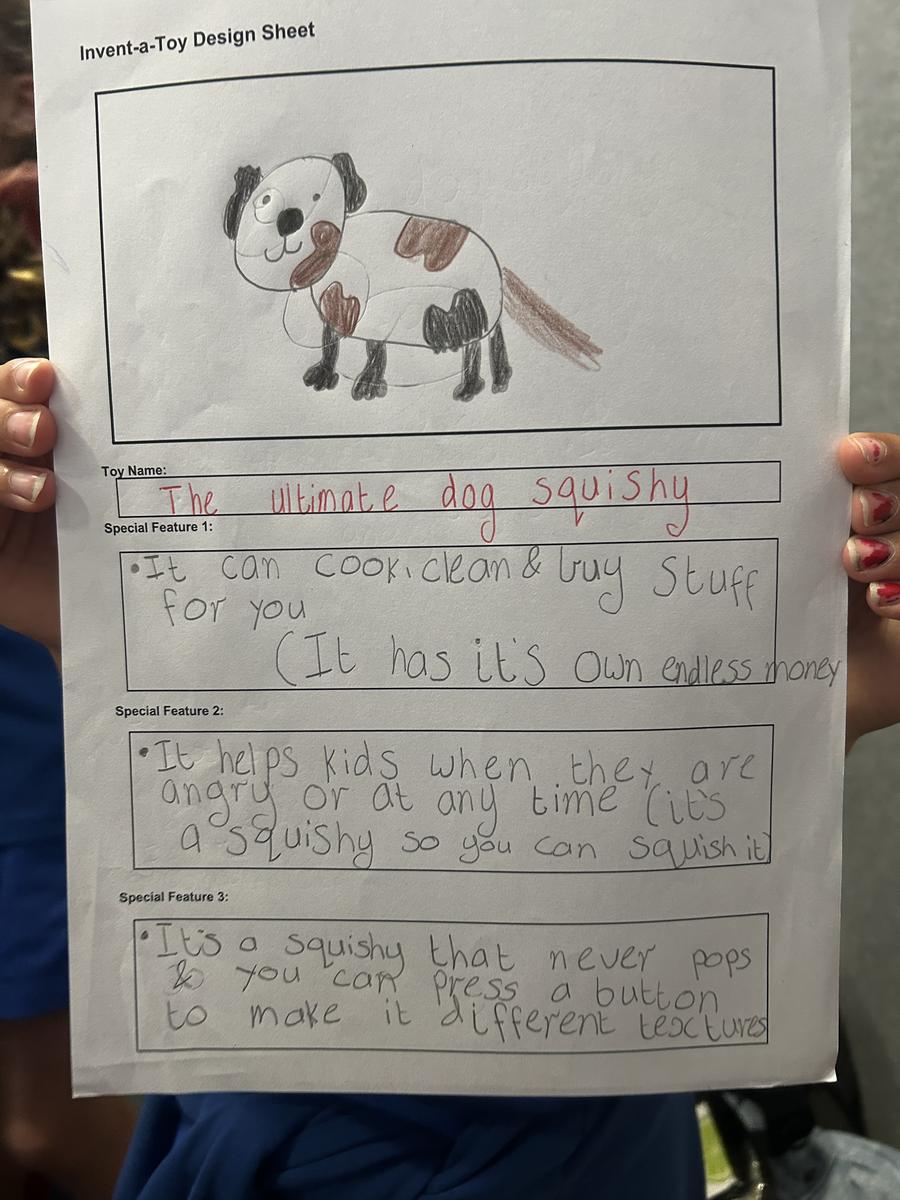 Invent-a-Toy Design Sheet
Toy Name:
The ultimate dog squishy
Special Feature 1:
•It can cook, clean & buy stuff
for you
(It has it's own endless money
Special Feature 2:
•It helps kids when they are
angry or at any time (it's
a squishy so you can squish it)
Special Feature 3:
•It's a squishy that never pops
& you can press a button
to make it different textures